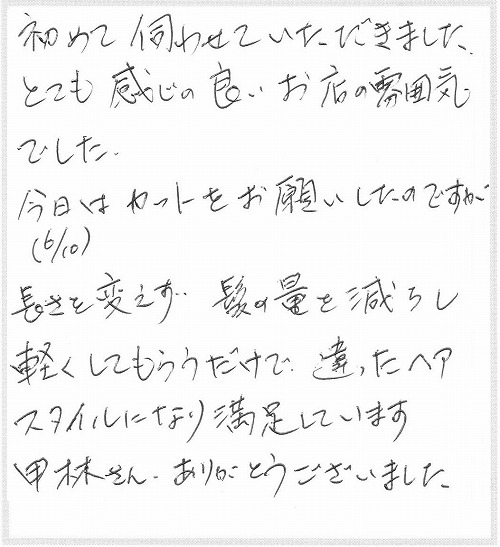 初めて伺わせていただきました。
とても感じの良いお店の雰囲気
でした。
今日はカットをお願いしたのですが
(6/10)
長さを変えず 髪の量を減らし
軽くしてもらうだけで 違ったヘア
スタイルになり満足しています
甲林さん. ありがとうございました